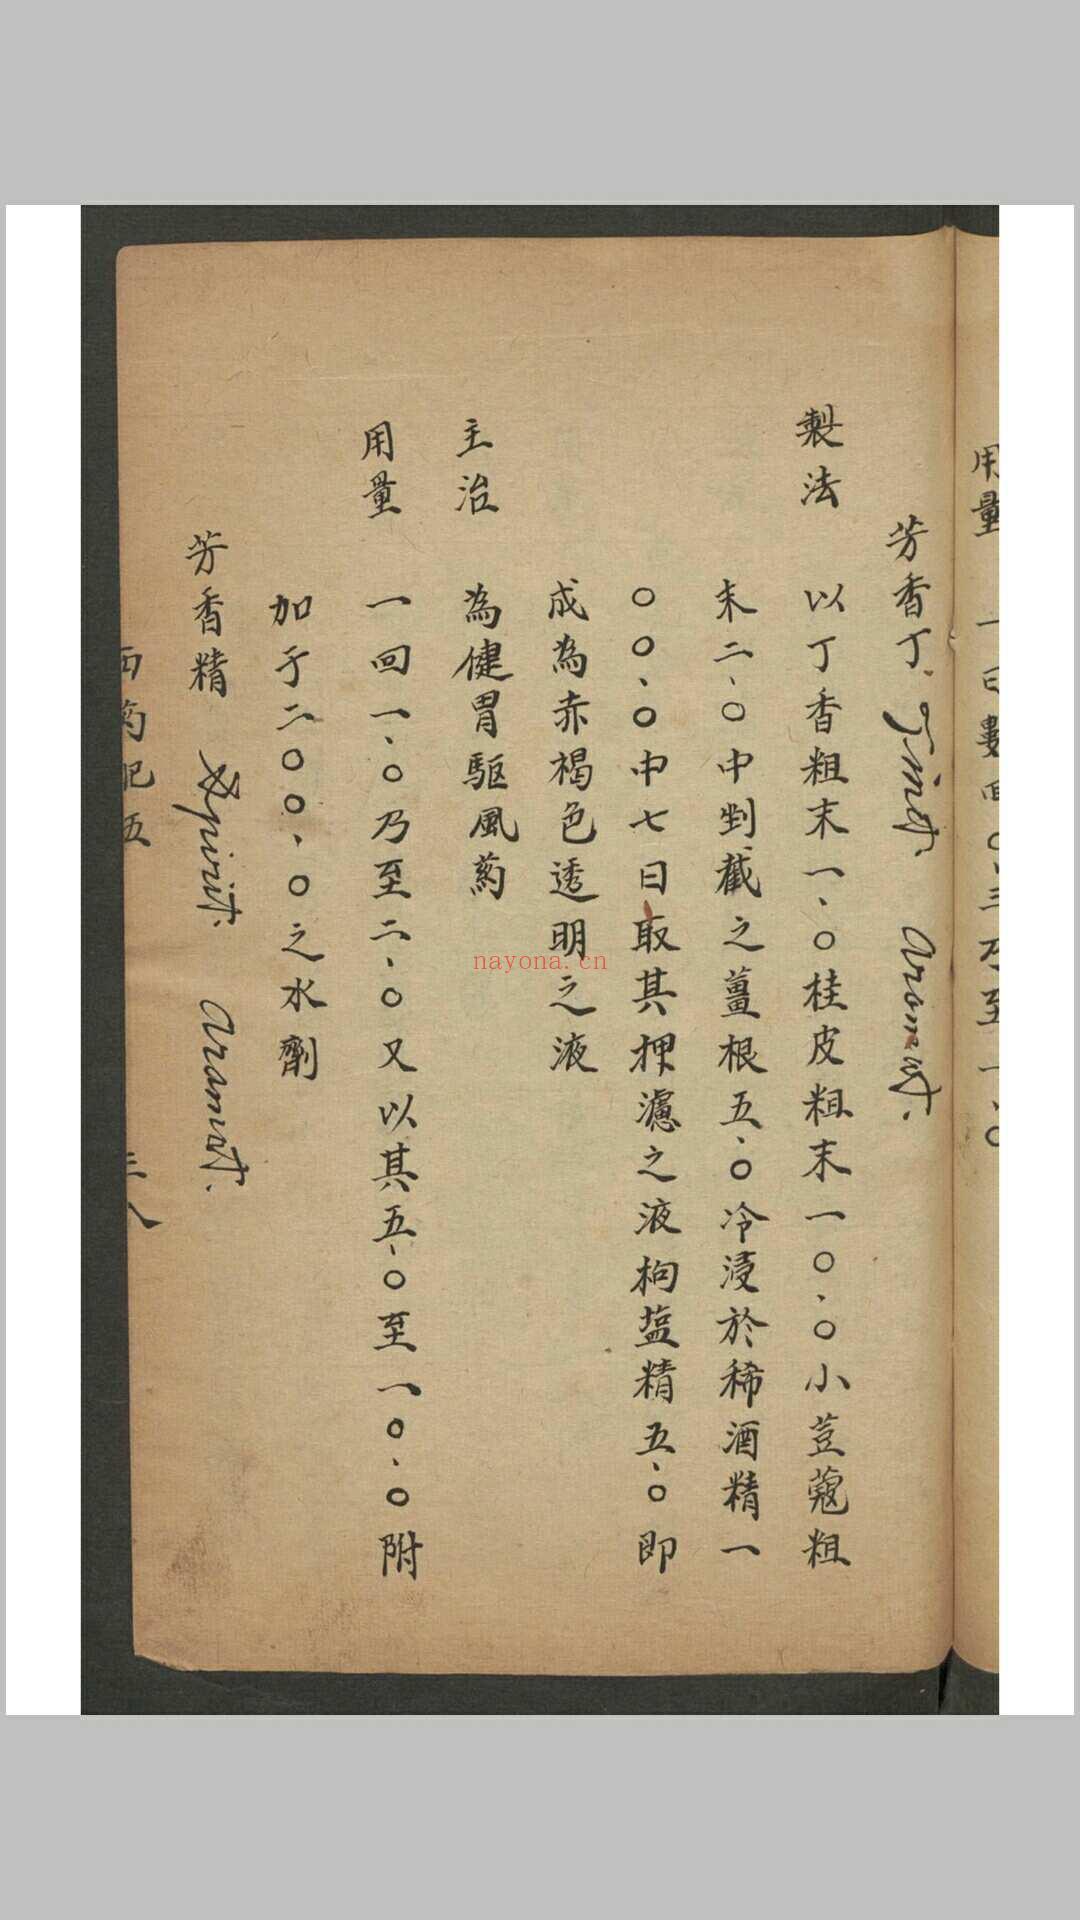 用量 一日數回〇、三乃至一、〇
芳香丁 Tinct. Aromat.
製法 以丁香粗末一、〇桂皮粗末一〇、〇小荳蔻粗
末二、〇中剉截之薑根五、〇冷浸於稀酒精一
〇〇、〇中七日取其押濾之液枸盐精五、〇即
成為赤褐色透明之液
主治 為健胃驅風葯
用量 一回一、〇乃至二、〇又以其五、〇至一〇、〇附
加于二〇〇、〇之水劑
芳香精 Spirit. Aromat.
西葯 五 三八
nayona.cn